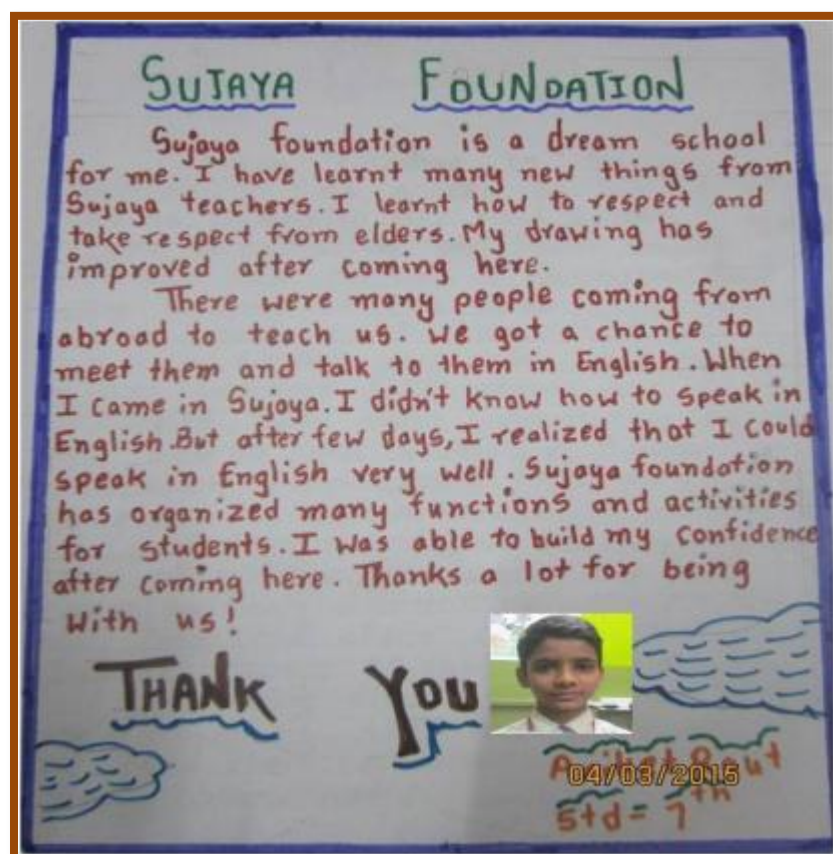 SUJAYA FOUNDATION
Sujaya foundation is a dream school
for me. I have learnt many new things from
Sujaya teachers. I learnt how to respect and
take respect from elders. My drawing has
improved after coming here.
There were many people coming from
abroad to teach us. We got a chance to
meet them and talk to them in English. When
I came in Sujaya. I didn't know how to speak in
English. But after few days, I realized that I could
speak in English very well. Sujaya foundation
has organized many functions and activities
for students. I was able to build my confidence
after coming here. Thanks a lot for being
with us!
THANK YOU
04/03/2015
Std = 7th